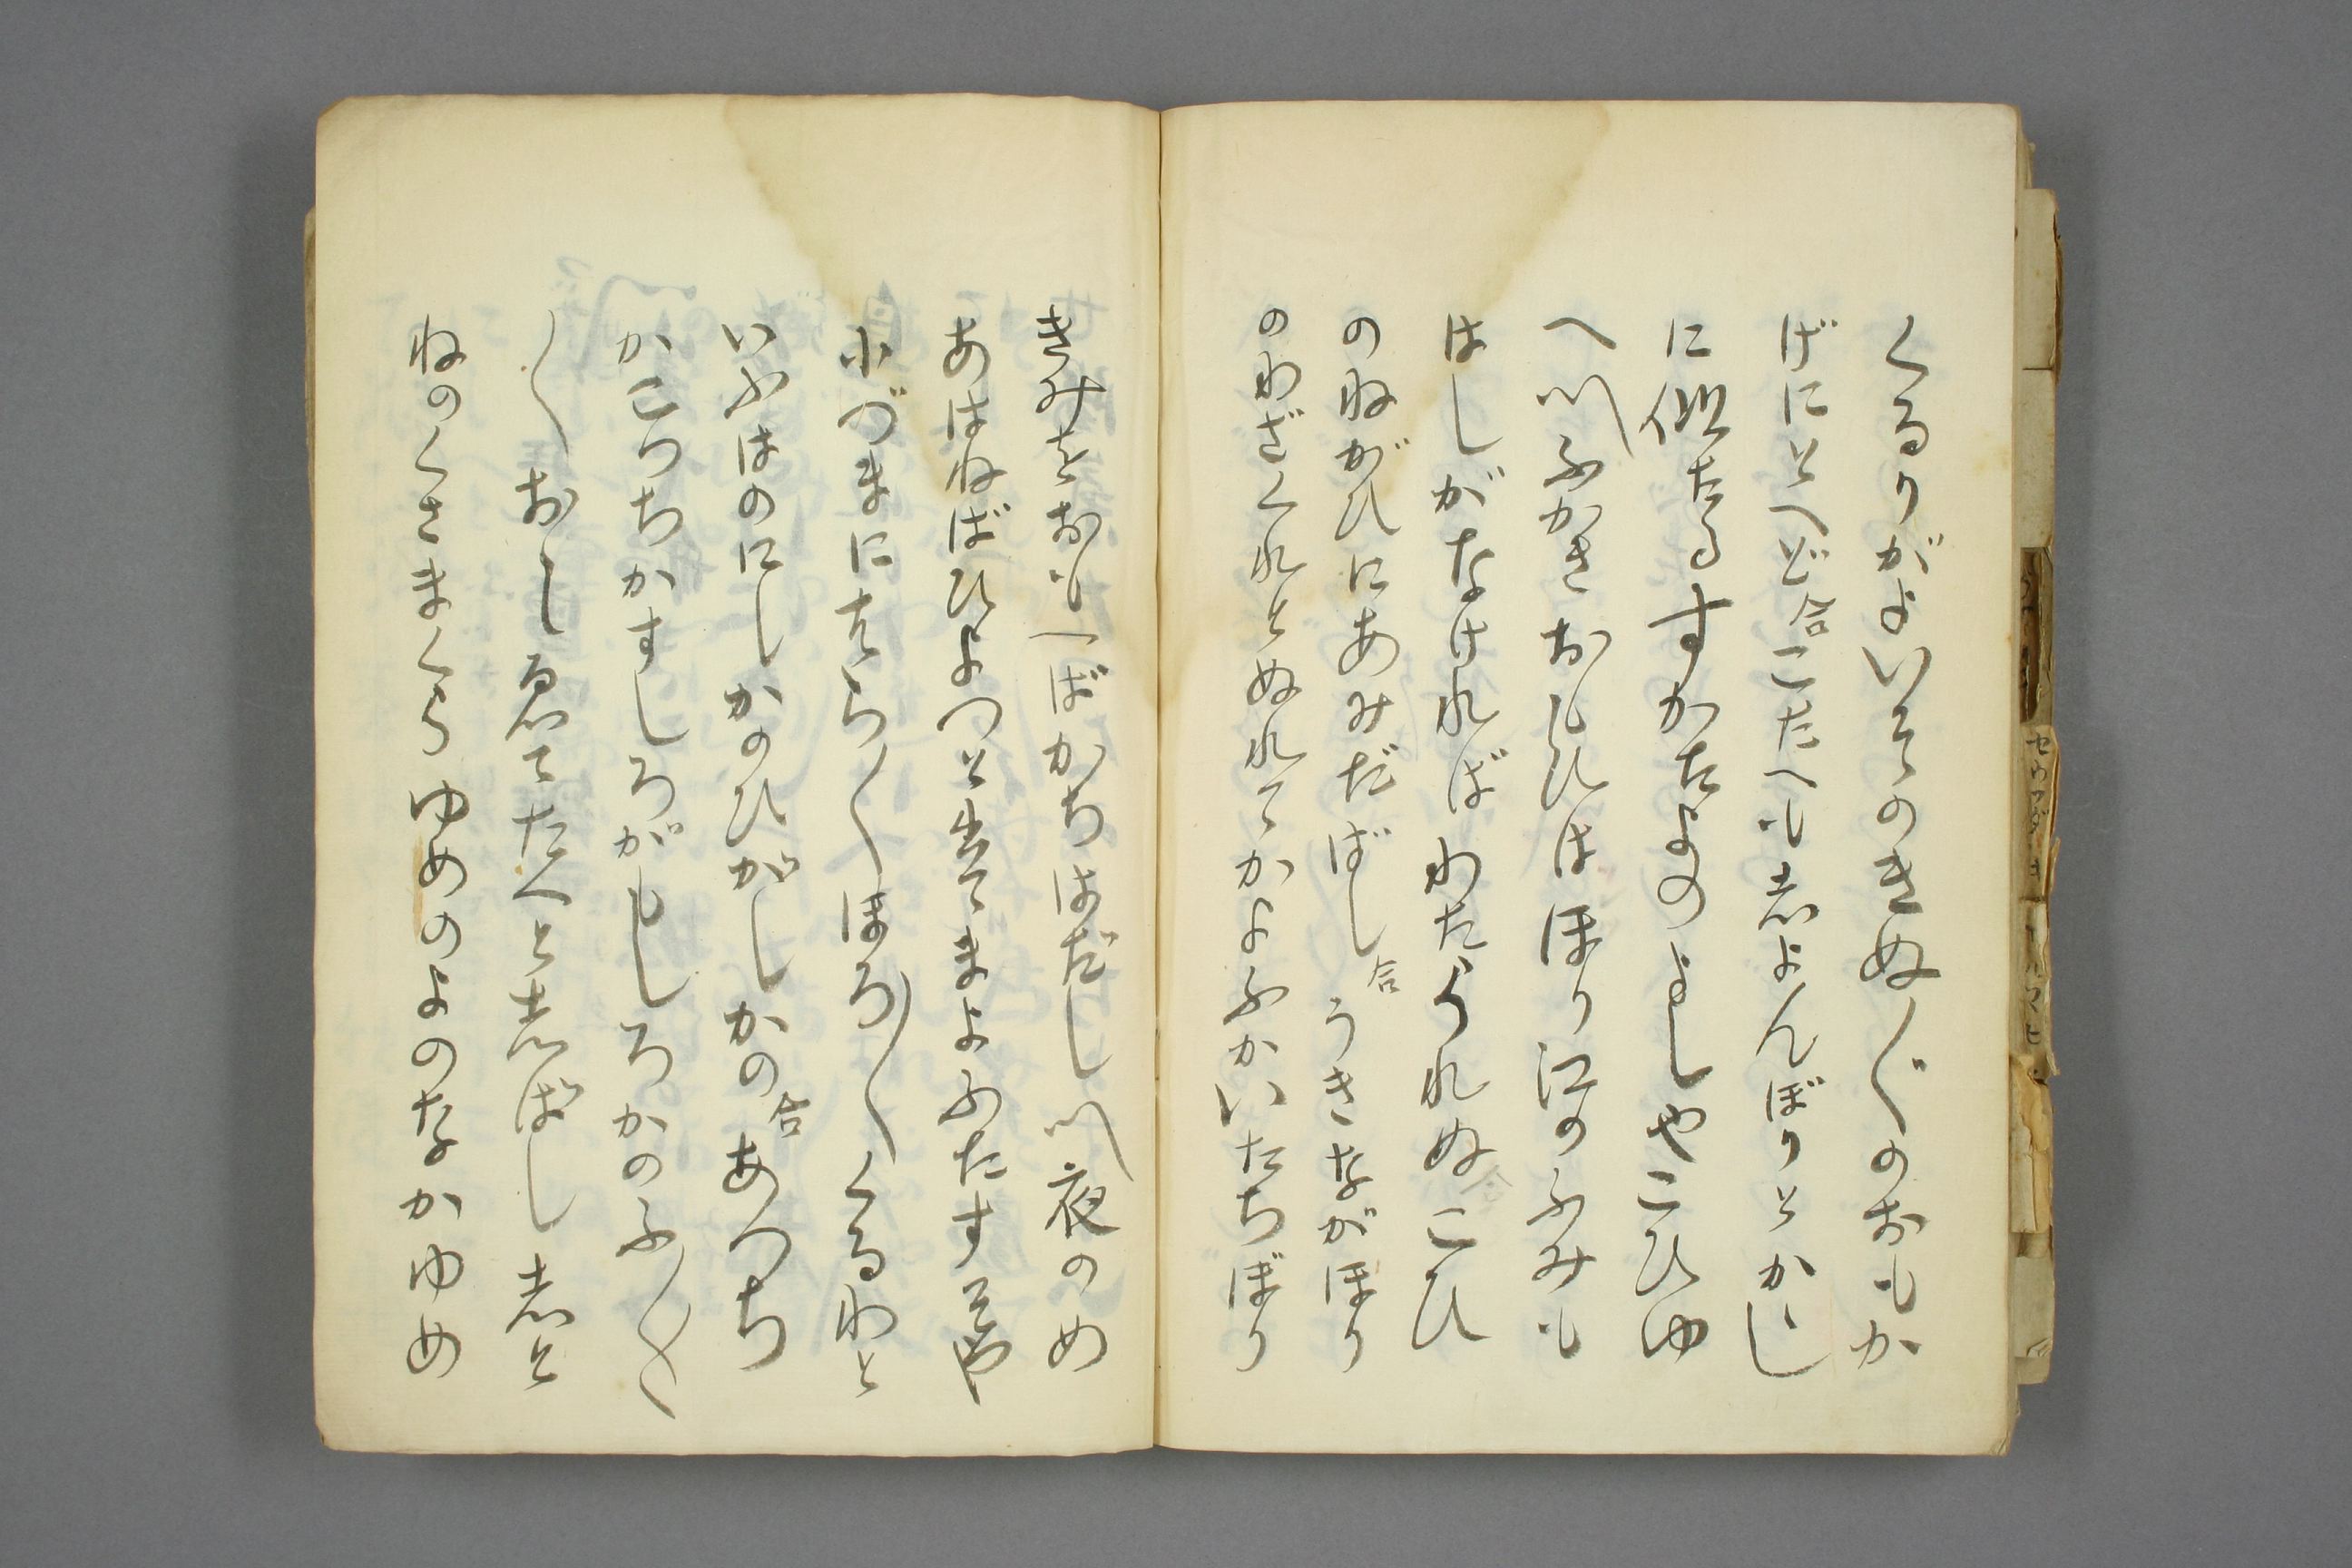 くるわがよいそのきぬ〴〵のおもか
げにとへど合こたへも志よんぼりとかゝし
に似たるすかたよのよしやこひゆ
へ〳〵ふかきおもひはほり江のふみも
はしがなければわたられぬこひ
のねがひにあみだばし合うきながほり
のわざくれとぬれてかよふかいたちぼり
きみをおもへばかちはだし〳〵夜のめ
あはねばひよつと出てまよふたす
小づまにたら〳〵ほろ〳〵くるわと
いふはのにしかのひがしかの合あつち
かこつちかすしろがもしろかのふ〳〵
〳〵おこし忍てたへと志ばし志と
ねのくさまくらゆめのよのなかゆめ